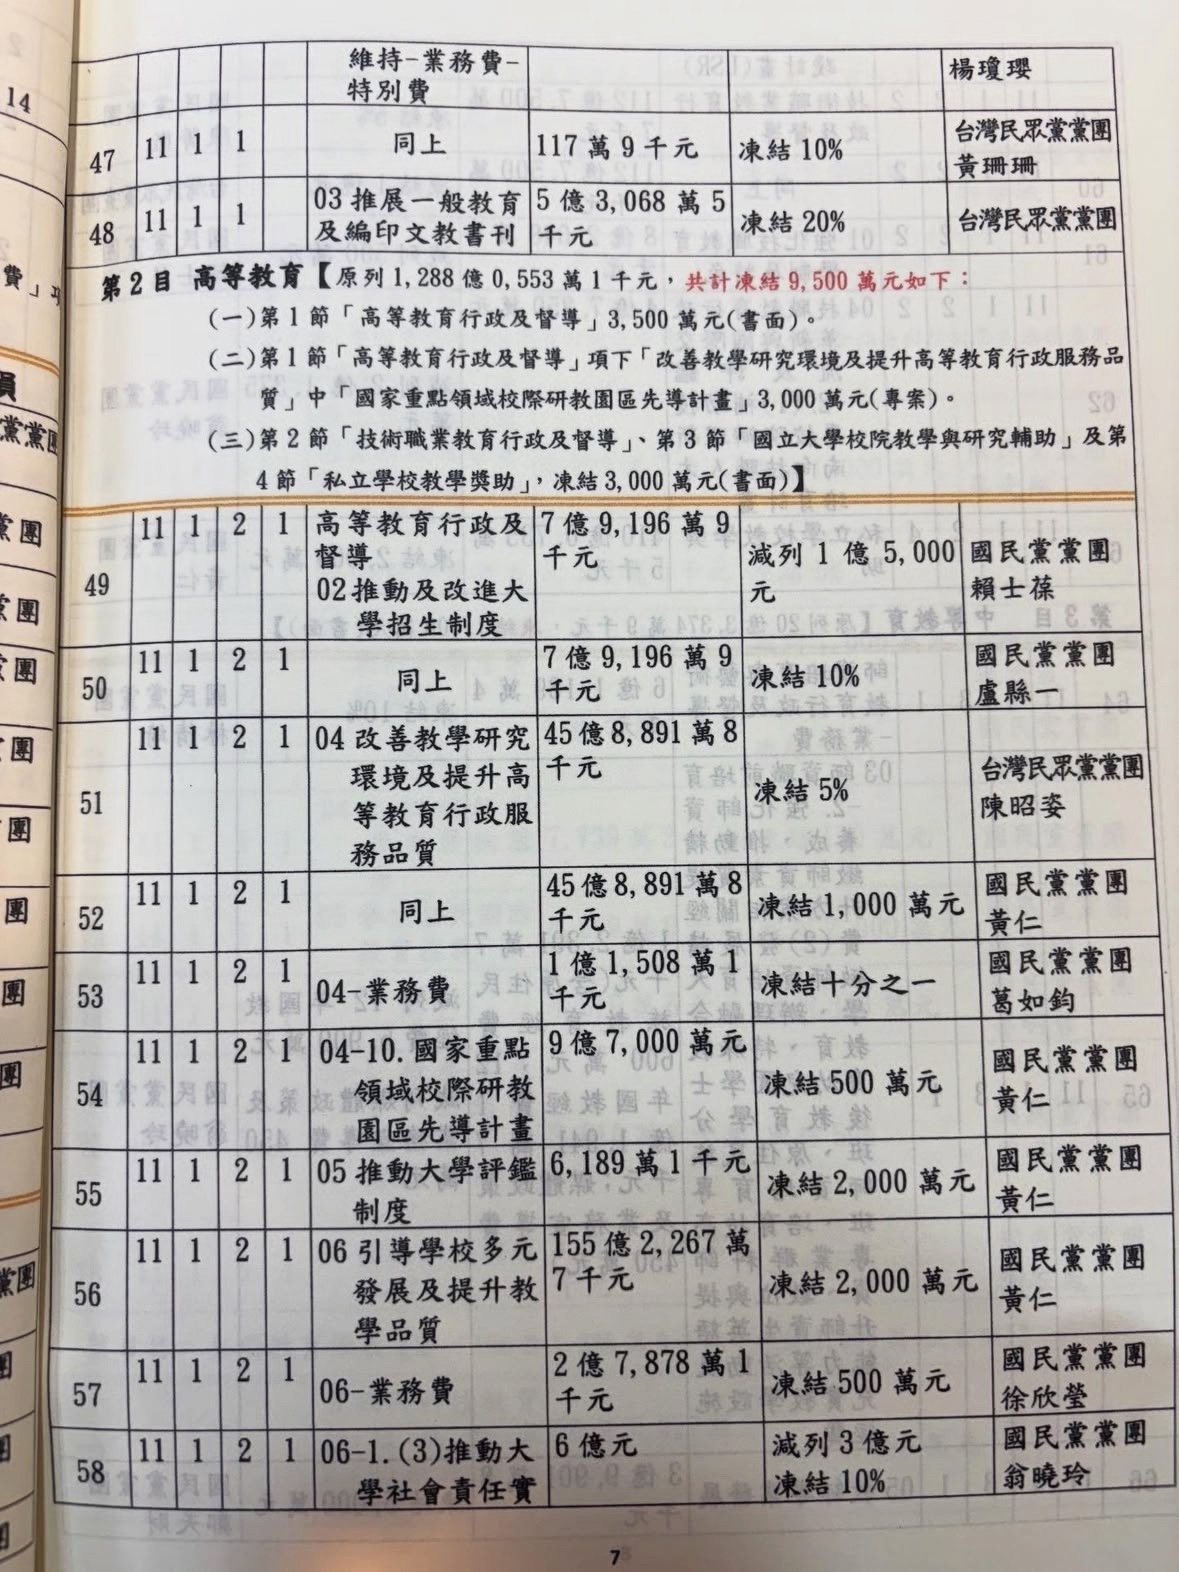 維持-業務費-
特別費
楊瓊瓔
47 11 1 1 同上 117 萬 9 千元 凍結 10% 台灣民眾黨黨團
黃珊珊
48 11 1 1 03 推展一般教育 5 億 3,068 萬 5 凍結 20% 台灣民眾黨黨團
及編印文教書刊 千元
第 2 目 高等教育【原列 1,288 億 0,553 萬 1 千元，共計凍結 9,500 萬元如下：
(一)第 1 節「高等教育行政及督導」3,500 萬元(書面)。
(二)第 1 節「高等教育行政及督導」項下「改善教學研究環境及提升高等教育行政服務品
質」中「國家重點領域校際研教園區先導計畫」3,000 萬元(專案)。
(三)第 2 節「技術職業教育行政及督導」、第 3 節「國立大學校院教學與研究輔助」及第
4 節「私立學校教學獎助」，凍結 3,000 萬元(書面)】
49 11 1 2 1 高等教育行政及 7 億 9,196 萬 9 減列 1 億 5,000 國民黨黨團
督導 千元 元 賴士葆
02 推動及改進大
學招生制度
50 11 1 2 1 同上 7 億 9,196 萬 9 凍結 10% 國民黨黨團
千元 盧縣一
51 11 1 2 1 04 改善教學研究 45 億 8,891 萬 8 凍結 5% 台灣民眾黨黨團
環境及提升高 千元 陳昭姿
等教育行政服
務品質
52 11 1 2 1 同上 45 億 8,891 萬 8 凍結 1,000 萬元 國民黨黨團
千元 黃仁
53 11 1 2 1 04-業務費 1 億 1,508 萬 1 凍結十分之一 國民黨黨團
千元 葛如鈞
54 11 1 2 1 04-10. 國家重點 9 億 7,000 萬元 凍結 500 萬元 國民黨黨團
領域校際研教 黃仁
園區先導計畫
55 11 1 2 1 05 推動大學評鑑 6,189 萬 1 千元 凍結 2,000 萬元 國民黨黨團
制度 黃仁
56 11 1 2 1 06 引導學校多元 155 億 2,267 萬 凍結 2,000 萬元 國民黨黨團
發展及提升教 7 千元 黃仁
學品質
57 11 1 2 1 06-業務費 2 億 7,878 萬 1 凍結 500 萬元 國民黨黨團
千元 徐欣瑩
58 11 1 2 1 06-1.(3)推動大 6 億元 減列 3 億元 國民黨黨團
學社會責任實 凍結 10% 翁曉玲
7